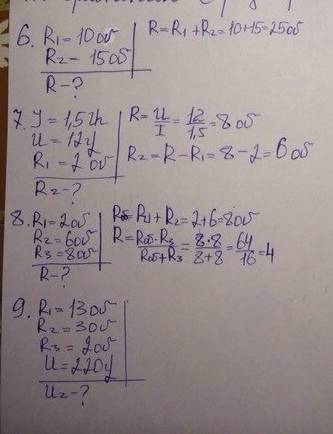 6. R₁ = 10 об
R₂ – 15 об
R – ?
R = R₁ + R₂ = 10+15 = 25 об
7. J = 1,5 th
U = 12 y
R₁ = 2 об
R₂ – ?
R = U/I = 12/1,5 = 8 об
R₂ = R – R₁ = 8 – 2 = 6 об
8. R₁ = 2 об
R₂ = 6 об
R₃ = 8 об
R – ?
Rоб = R₁ + R₂ = 2+6 = 8 об
R = Rоб·R₃/Rоб+R₃ = 8·8/8+8 = 64/16 = 4
9. R₁ = 13 об
R₂ = 3 об
R₃ = 2 об
U = 220 y
U₂ – ?